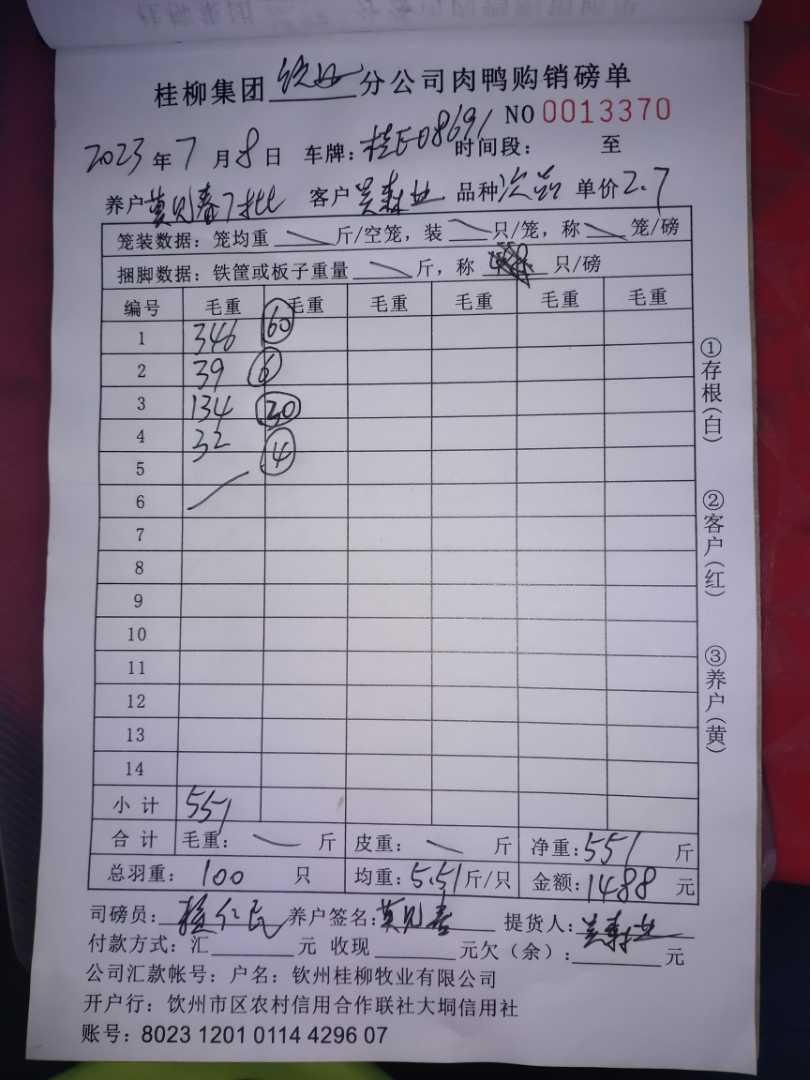 桂柳集团 钦州 分公司肉鸭购销磅单
NO 0013370
2023 年 7 月 8 日 车牌: 桂E08691 时间段: 至
养户 莫见春7批 客户 吴森业 品种 次品 单价 2.7
笼装数据: 笼均重 斤/空笼, 装 只/笼, 称 笼/磅
捆脚数据: 铁筐或板子重量 斤, 称 只/磅
编号 毛重 毛重 毛重 毛重 毛重 毛重
1 346 60
2 39 6
3 134 30
4 32 4
5
6
7
8
9
10
11
12
13
14
小 计 551
合 计 毛重: 斤 皮重: 斤 净重: 551 斤
总羽重: 100 只 均重: 5.51 斤/只 金额: 1488 元
司磅员: 仁民 养户签名: 莫见春 提货人: 吴森业
付款方式: 汇 元 收现 元欠(余): 元
公司汇款帐号: 户名: 钦州桂柳牧业有限公司
开户行: 钦州市区农村信用合作联社大垌信用社
账号: 8023 1201 0114 4296 07
①存根(白)
②客户(红)
③养户(黄)